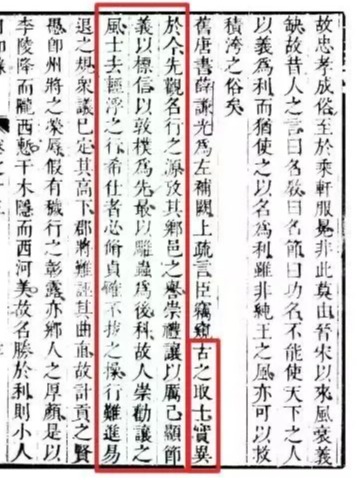 故忠孝成俗至於乘軒服冕非此莫由晉宋以來風衰義
缺故昔人之言曰名教曰名節曰功名不能使天下之人
以義為利而猶使之以名為利雖非純王之風亦可以救
積洿之俗矣
舊唐書薛謙光為左補闕上疏言臣竊窺古之取士實異
於今先觀名行之源攷其鄉邑之譽崇禮讓以厲己顯節
義以標信以敦樸為先最以雕蟲為後科故人崇勸讓之
風士去輕浮之行希仕者必脩貞確不拔之操行難進易
退之規衆議已定其高下郡將難誣其曲直故計貢之賢
愚即州將之榮辱假有穢行之彰露亦鄉人之厚顏是以
李陵降而隴西慙干木隱而西河美故名勝於利則小人